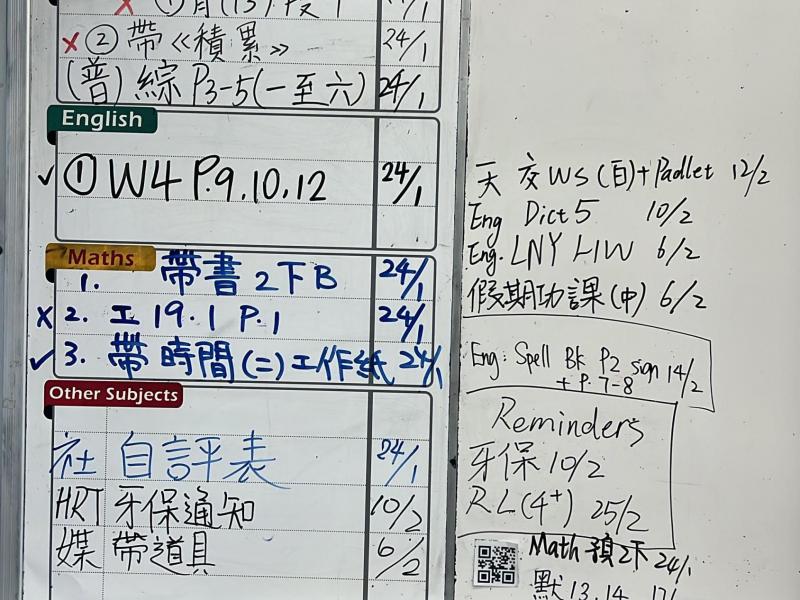 ② 帶《積累》 24/1
(普) 綜 P3-5(一至六) 24/1
English
① W4 P.9,10,12 24/1
Maths
1. 帶書2下B 24/1
2. 工 19.1 P.1 24/1
3. 帶時間(二)工作紙 24/1
Other Subjects
社 自評表 24/1
HRT 牙保通知 10/2
媒 帶道具 6/2
天 交 WS (百)+Padlet 12/2
Eng Dict 5 10/2
Eng. LNY LIW 6/2
假期功課(中) 6/2
Eng: Spell Bk P2 sign 14/2
+ P. 7-8
Reminders
牙保 10/2
RL(4+) 25/2
Math 預2下 24/1
默13,14